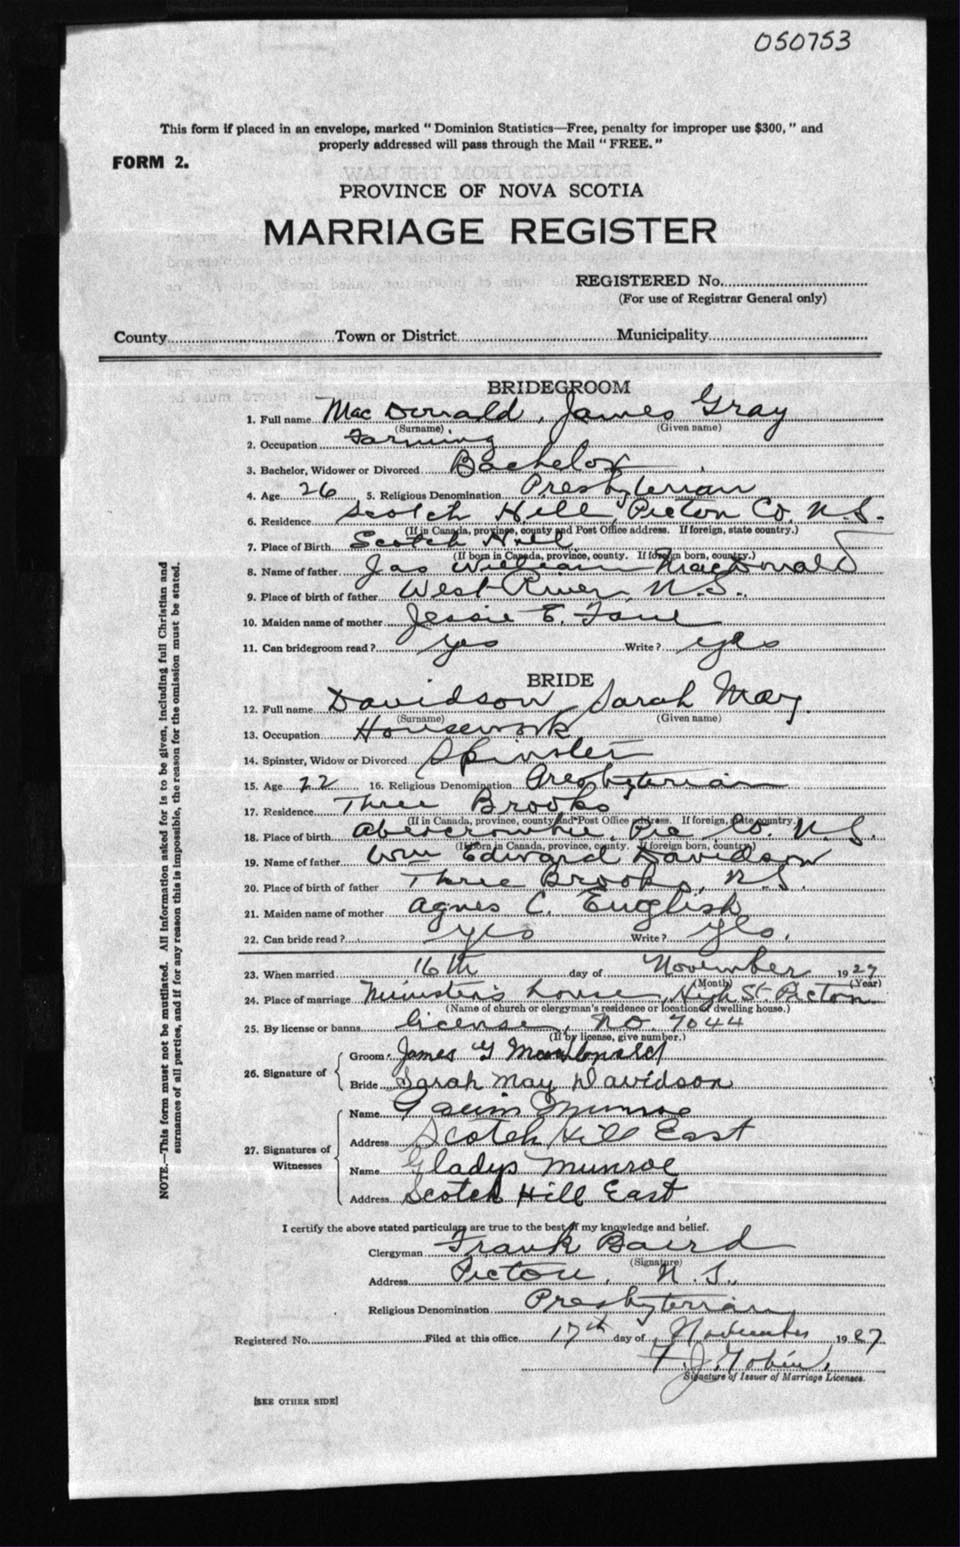 050753
This form if placed in an envelope, marked "Dominion Statistics—Free, penalty for improper use $300," and
properly addressed will pass through the Mail "FREE."
FORM 2.
PROVINCE OF NOVA SCOTIA
MARRIAGE REGISTER
REGISTERED No.
(For use of Registrar General only)
County Town or District Municipality
BRIDEGROOM
1. Full name MacDonald, James Gray
(Surname) (Given name)
2. Occupation Farming
3. Bachelor, Widower or Divorced Bachelor
4. Age 26 5. Religious Denomination Presbyterian
6. Residence Scotch Hill, Pictou Co, N.S.
(If in Canada, province, county and Post Office address. If foreign, state country.)
7. Place of Birth Scotch Hill
(If born in Canada, province, county. If foreign born, country.)
8. Name of father Jas William MacDonald
9. Place of birth of father West River, N.S.
10. Maiden name of mother Jessie E.
11. Can bridegroom read? yes Write? yes
BRIDE
12. Full name Davidson, Sarah May
(Surname) (Given name)
13. Occupation Housework
14. Spinster, Widow or Divorced Spinster
15. Age 22 16. Religious Denomination Presbyterian
17. Residence Three Brooks
(If in Canada, province, county and Post Office address. If foreign, state country.)
18. Place of birth Abercrombie, Pic Co. N.S.
(If born in Canada, province, county. If foreign born, country)
19. Name of father Wm Edward Davidson
20. Place of birth of father Three Brooks, N.S.
21. Maiden name of mother Agnes C. English
22. Can bride read? yes Write? yes.
23. When married 16th day of November 1927
(Month) (Year)
24. Place of marriage Minister's house, High St. Pictou
(Name of church or clergyman's residence or location of dwelling house.)
25. By license or banns license, No. 7044
(If by license, give number.)
26. Signature of
Groom James G MacDonald
Bride Sarah May Davidson
27. Signatures of Witnesses
Name Munroe
Address Scotch Hill East
Name Gladys Munroe
Address Scotch Hill East
I certify the above stated particulars are true to the best of my knowledge and belief.
Clergyman Frank Baird
(Signature)
Address Pictou, N.S.
Religious Denomination Presbyterian
Registered No. Filed at this office 17th day of November 1927
F. J. Tobin
Signature of Issuer of Marriage Licenses.
[SEE OTHER SIDE]
NOTE.—This form must not be mutilated. All information asked for is to be given, including full Christian and
surnames of all parties, and if for any reason this is impossible, the reason for the omission must be stated.